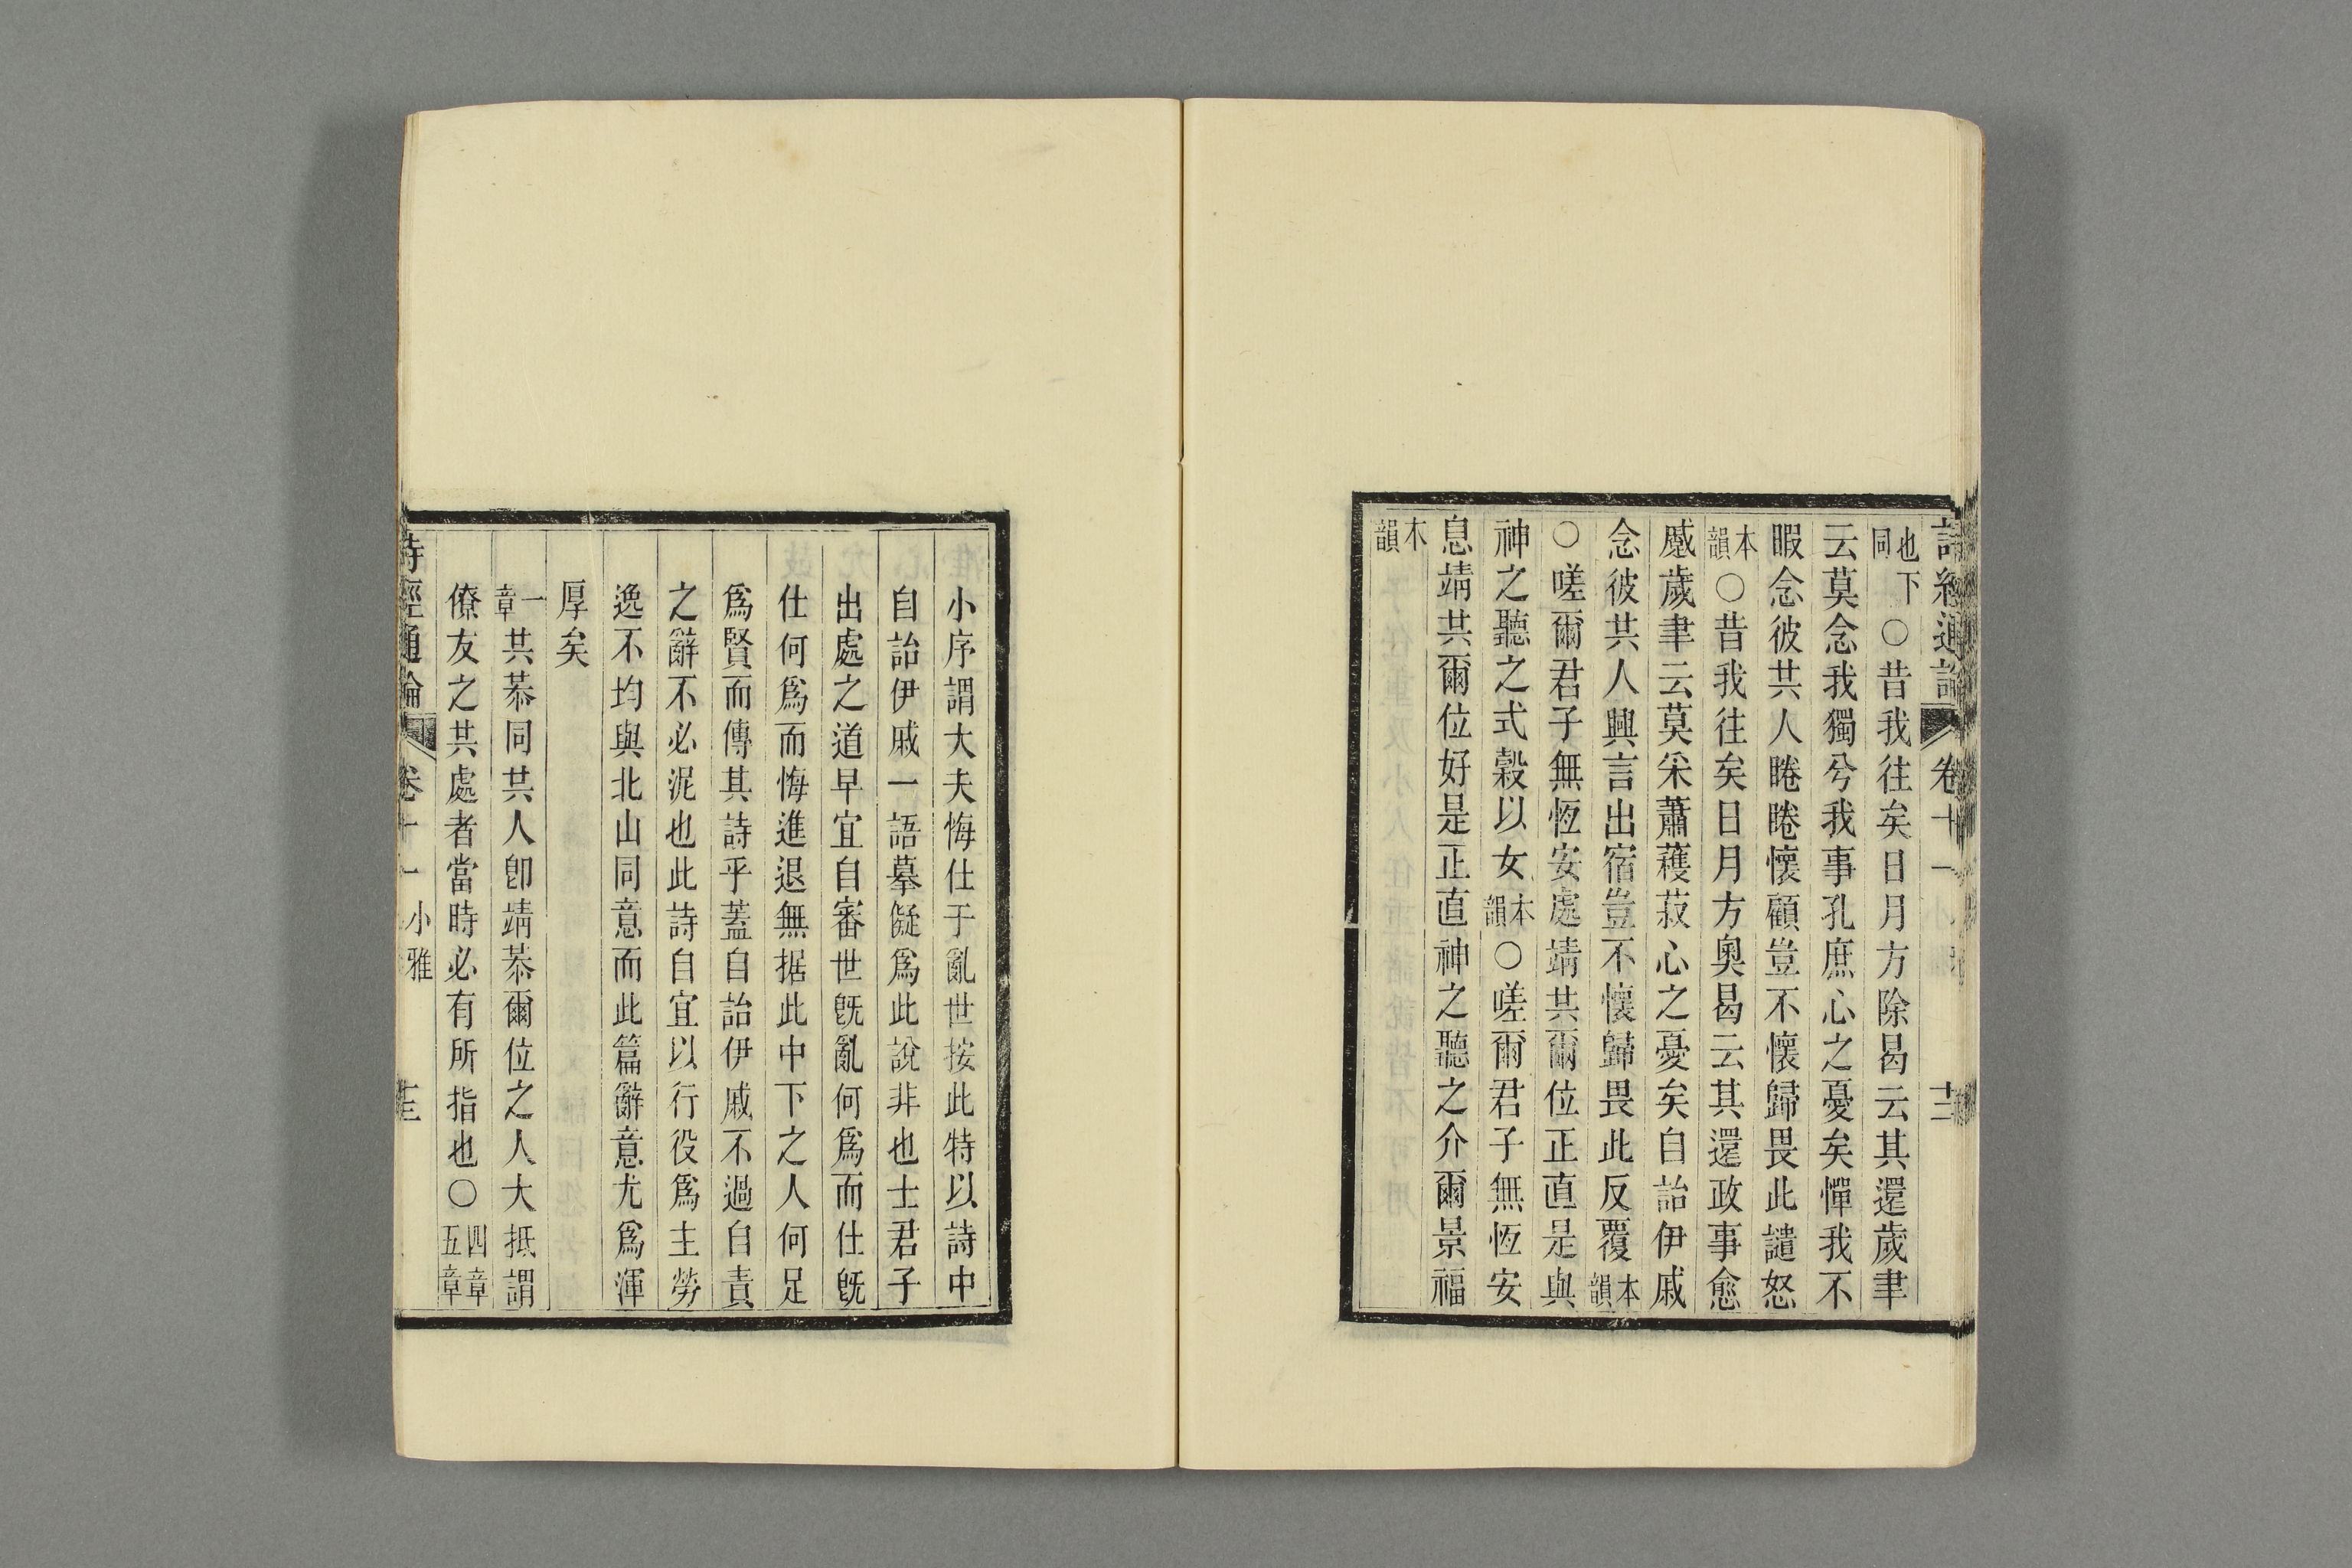 詩經通論 卷十一 十二
也下同○昔我往矣日月方除曷云其還歲聿
云莫念我獨兮我事孔庶心之憂矣憚我不
暇念彼共人睠睠懷顧豈不懷歸畏此譴怒
本韻○昔我往矣日月方奧曷云其還政事愈
蹙歲聿云莫采蕭穫菽心之憂矣自詒伊戚
念彼共人興言出宿豈不懷歸畏此反覆本韻
○嗟爾君子無恆安處靖共爾位正直是與
神之聽之式穀以女本韻○嗟爾君子無恆安
息靖共爾位好是正直神之聽之介爾景福
本韻
小序謂大夫悔仕于亂世按此特以詩中
自詒伊戚一語摹儗爲此說非也士君子
出處之道早宜自審世旣亂何爲而仕旣
仕何爲而悔進退無据此中下之人何足
爲賢而傳其詩乎蓋自詒伊戚不過自責
之辭不必泥也此詩自宜以行役爲主勞
逸不均與北山同意而此篇辭意尤爲渾
厚矣
一章共恭同共人卽靖恭爾位之人大抵謂
僚友之共處者當時必有所指也○四章五章
詩經通論 卷十一 小雅 十三